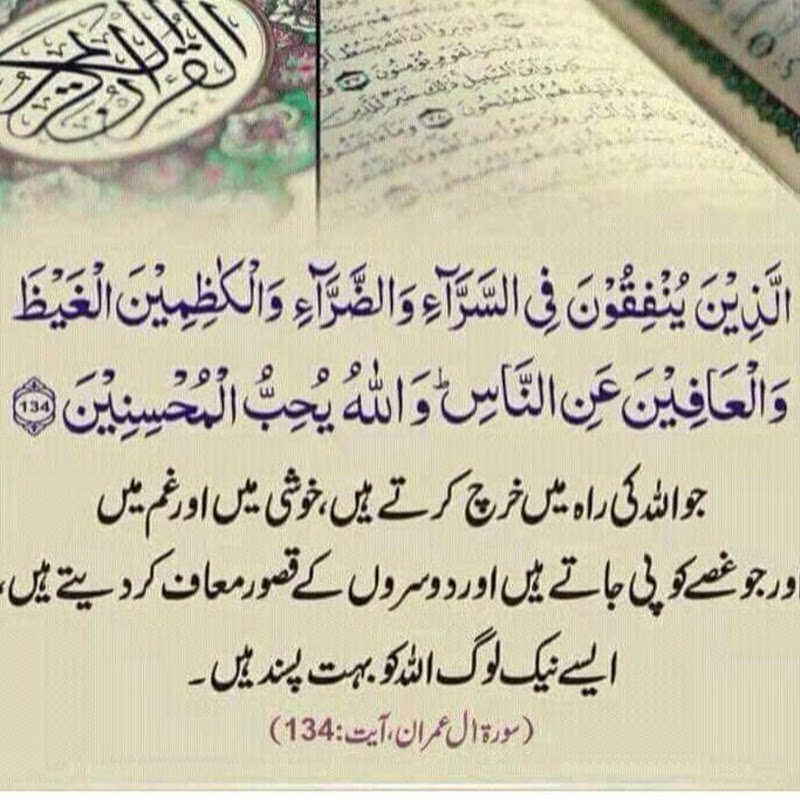 القرآن الكريم
الَّذِيْنَ يُنْفِقُوْنَ فِى السَّرَّآءِ وَالضَّرَّآءِ وَالْكٰظِمِيْنَ الْغَيْظَ
وَالْعَافِيْنَ عَنِ النَّاسِ ؕ وَاللّٰهُ يُحِبُّ الْمُحْسِنِيْنَ 134
جو اللہ کی راہ میں خرچ کرتے ہیں، خوشی میں اور غم میں
اور جو غصے کو پی جاتے ہیں اور دوسروں کے قصور معاف کر دیتے ہیں،
ایسے نیک لوگ اللہ کو بہت پسند ہیں۔
(سورۃ ال عمران، آیت: 134)